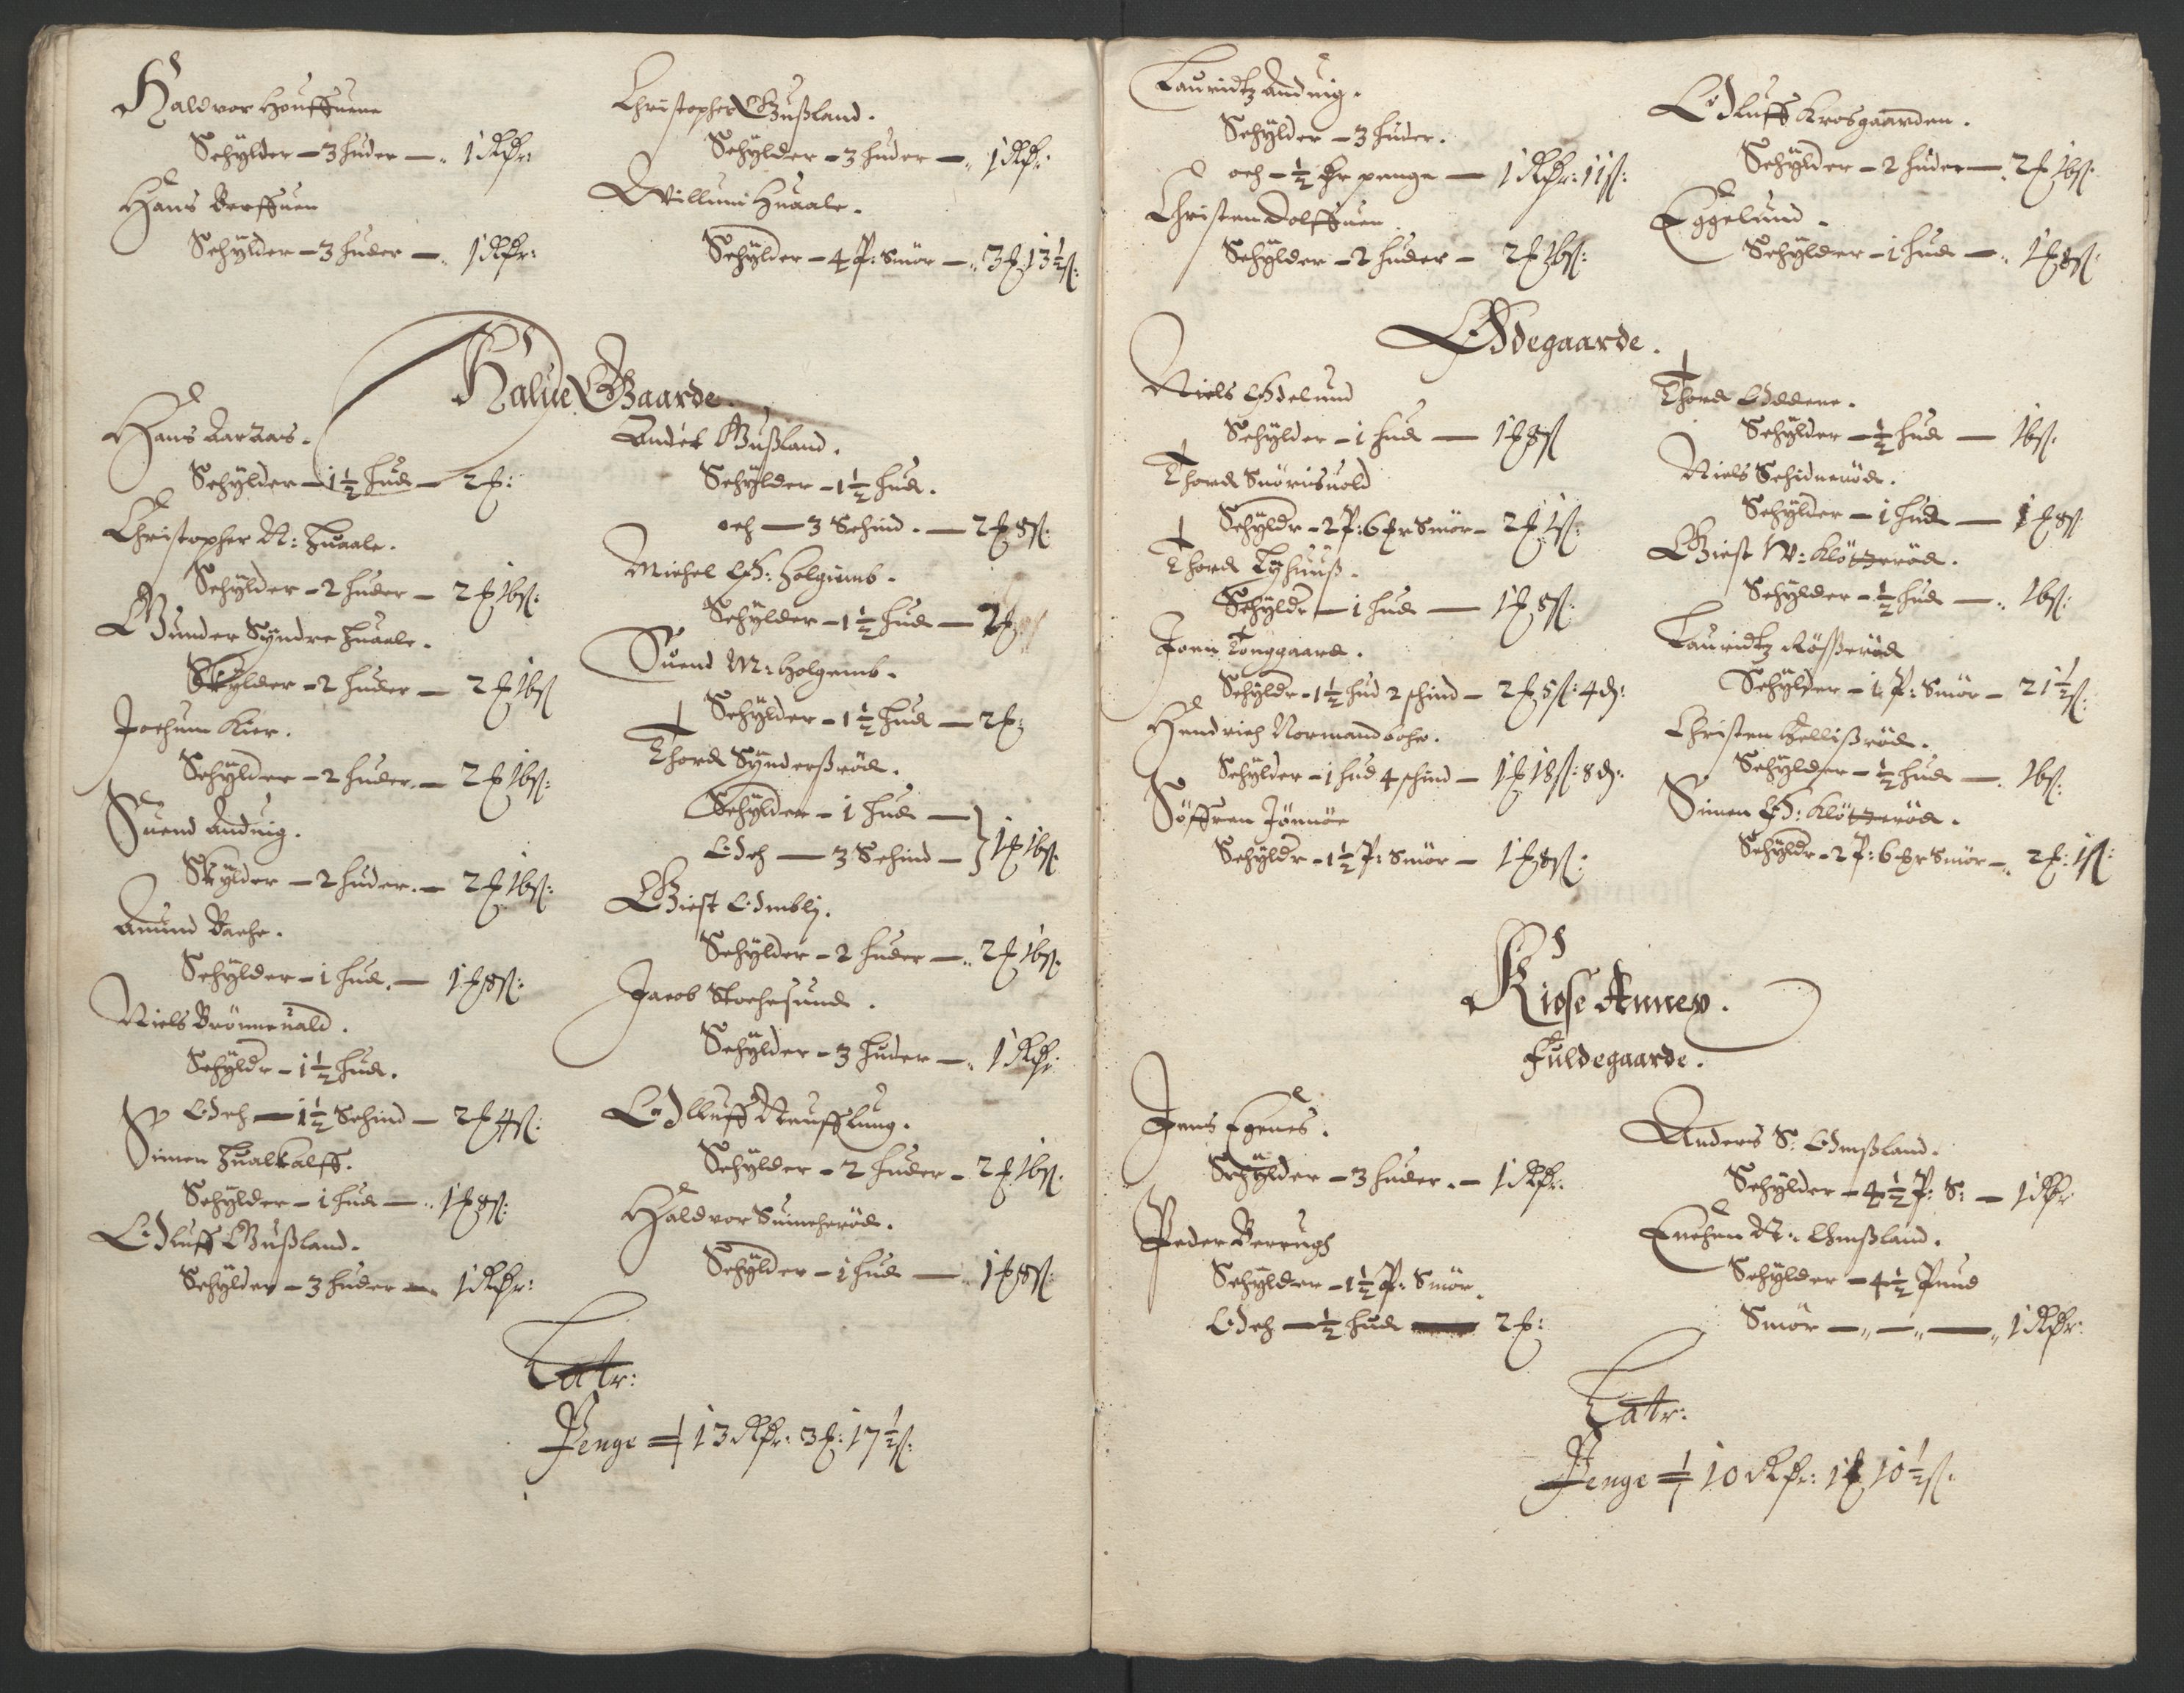 Haldvor Houffuene
Schylder - 3 huder - 1 Rdr:
Hans Berffuen
Schylder - 3 huder - 1 Rdr:
Christopher Gußland.
Schylder - 3 huder - 1 Rdr:
Willum Huaale.
Schylder - 4 P: Smör - 3 ß 13½ s:
Halue Gaarde.
Hans Aaraas.
Schylder - 1½ hud - 2 ß:
Christopher N: Huaale.
Schylder - 2 huder - 2 ß 16 s:
Gunder Syndre Huaale.
Schylder - 2 huder - 2 ß 16 s
Jochum Kier.
Schylder - 2 huder - 2 ß 16 s:
Suend Anduig.
Schylder - 2 huder - 2 ß 16 s:
Amund Backe.
Schylder - 1 hud - 1 ß 8 s:
Niels Brönneuald.
Schyldr - 1½ hud.
Och - 1½ Schind - 2 ß 4 s:
Simen Hualkalff.
Schylder - 1 hud - 1 ß 8 s:
Oluff Gußland.
Schylder - 3 huder - 1 Rdr:
Andet Gußland.
Schylder - 1½ hud.
och - 3 Schind - 2 ß 8 s:
Michel Ø: Holgumb.
Schylder - 1½ hud - 2 ß
Suend M: Holgemb.
Schylder - 1½ hud - 2 ß:
Thord Synderßröd.
Schylder - 1 hud
Och - 3 Schind - 1 ß 16 s
Giest Ombly.
Schylder - 2 huder - 2 ß 16 s.
Jacob Stochesund.
Schylder - 3 huder - 1 Rdr
Olluff Neufflung.
Schylder - 2 huder - 2 ß 16 s.
Haldvor Suincheröd.
Schylder - 1 hud - 1 ß 8 s.
Latr:
Penge 13 Rdr: 3 ß: 17½ s:
Lauridtz Anduig.
Schylder - 3 huder.
och - ½ hr penge - 1 Rdr: 11 s:
Christen Dolffuen
Schylder - 2 huder - 2 ß 16 s:
Oluff Krosgaarden.
Schylder - 2 huder - 2 ß 16 s.
Eggelund.
Schylder - 1 hud - 1 ß 8 s.
Ødegaarde.
Niels Ødelund
Schylder - 1 hud - 1 ß 8 s
Thord Snörisuold
Schyldr - 2 P: 6 mr Smör - 2 ß 1 s:
Thord Lyhuuß.
Schyldr - 1 hud - 1 ß 8 s:
Joen Tonggaard.
Schyldr - 1½ hud 2 schind - 2 ß 5 s: 4 d:
Hendrich Normandbohr.
Schylder - 1 hud 4 schind - 1 ß 18 s: 8 d:
Söffren Jönnöe
Schyldr - 1½ P: Smör - 1 ß 8 s:
Thord Oddene.
Schylder - ½ hud - 16 s.
Niels Schidneröd.
Schylder - 1 hud - 1 ß 8 s
Giest W: Klötzeröd.
Schylder - ½ hud - 16 s:
Lauridtz Rößeröd
Schylder - 1 P: Smör - 21½ s:
Christen Hellißröd.
Schylder - ½ hud - 16 s:
Simen Ø: Klötzeröd.
Schyldr - 2 P: 6 mr Smör - 2 ß: 1 s:
Kiose Annex.
Fuldegaarde.
Jens Egenes.
Schylder - 3 huder - 1 Rdr.
Peder Berrugh
Schylder - 1½ P: Smör.
Och - ½ hud - 2 ß:
Anders S: Omßland.
Schylder - 4½ P: S: - 1 Rdr
Enchen N: Omßland.
Schylder - 4½ Pund
Smör - 1 Rdr:
Latr:
Penge 10 Rdr: 1 ß 10½ s.